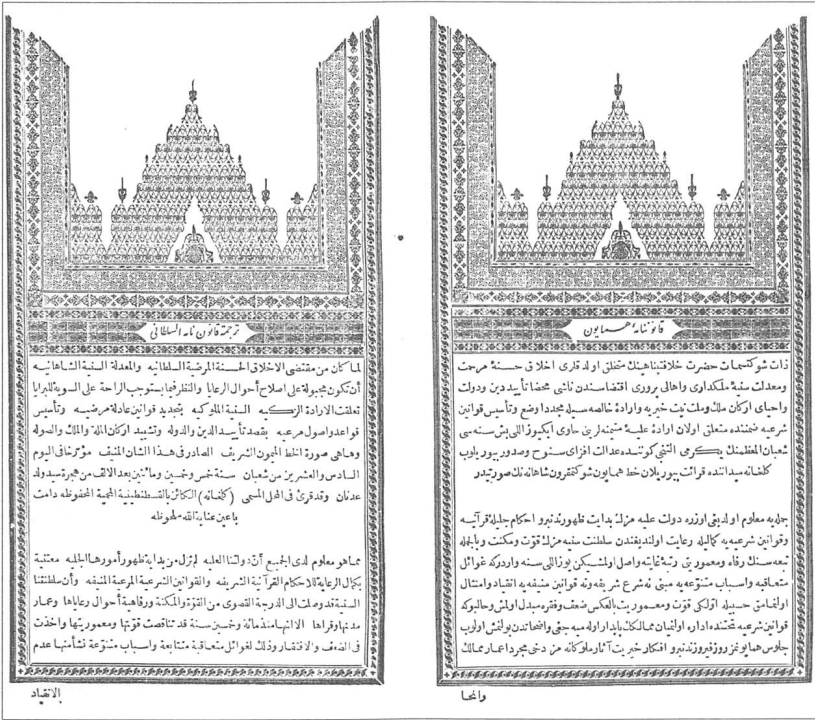 قانوننامهٔ همايون
ذات شوكتسمات حضرت خلافتپناهينك متخلق اولدقلری اخلاق حسنهٔ مرحمت
ومعدلت سنيهٔ ملكداری واهالی پروری اقتضاسندن ناشی محضا تأييد دين ودولت
واحيای اركان ملك وملت نيت خيريه وارادهٔ خالصه سيله مجددا وضع وتأسيس قوانين
شرعيه ضمننده متعلق اولان ارادهٔ عليهٔ متيمنه لرينی حاوی ايكيوز اللی بش سنه سی
شعبان المعظمنك يكرمی التنجی كوننده عدالت افزای سنوح وصدور بيوريلوب
كلخانه ميداننده قرائت بيوريلان خط همايون شوكتمقرون شاهانه نك صورتيدر
جمله يه معلوم اولديغی اوزره دولت عليه مزك بدايت ظهورندنبرو احكام جليلهٔ قرآنيه
وقوانين شرعيه يه كماليله رعايت اولنديغندن سلطنت سنيه مزك قوت ومكنت وبالجمله
تبعه سنك رفاه ومعموريتی رتبهٔ غايته واصل اولمشيكن يوز اللی سنه واردركه غوائل
متعاقبه واسباب متنوعه يه مبنی نه شرع شريفه ونه قوانين منيفه يه انقياد وامتثال
اولنمامق حسبيله اولكی قوت ومعموريت بالعكس ضعف وفقره مبدل اولمش وحالبوكه
قوانين شرعيه تحتنده اداره اولنميان ممالكك پايدار اوله ميه جغی واضحاتدن بولنمش اولوب
جلوس همايونمز روز فيروزندنبرو افكار خيريت آثار ملوكانه مز دخی مجرد اعمار ممالك
وانحا
ترجمة قانون نامه السلطانی
لما كان من مقتضى الاخلاق الحسنة المرضية السلطانيه والمعدلة السنية الشاهانيه
أن تكون مجبولة على اصلاح أحوال الرعايا والنظر فيما يستوجب الراحة على السوية للبرايا
تعلقت الارادة الزكيه السنية الملوكيه بتجديد قوانين عادلة مرضيه وتأسيس
قواعد واصول مرعيه بقصد تأييد الدين والدوله وتشييد اركان الملة والملك والصوله
وهاهى صورة الخط الميمون الشريف الصادر فى هذا الشان المنيف مؤرخا فى اليوم
السادس والعشرين من شعبان سنة خمس وخمسين ومائتين بعد الالف من هجرة سيد ولد
عدنان وقد قرئ فى المحل المسمى (كلخانه) الكائن بالقسطنطينية المحمية المحفوظه دامت
باعين عناية الله ملحوظه
مما هو معلوم لدى الجميع أن دولتنا العليه لم تزل من بداية ظهور أمورها الجليله معتنية
بكمال الرعاية للاحكام القرآنية الشريفه والقوانين الشرعية المرعية المنيفه وأن سلطنتنا
السنية قد وصلت الى الدرجة القصوى من القوة والمكنة ورفاهية أحوال رعاياها وعمار
مدنها وقراها الا انها منذ مائة وخمسين سنة قد تناقصت قوتها ومعموريتها واخذت
فى الضعف والافتقار وذلك لغوائل متعاقبة متتابعة واسباب متنوعة نشأ منها عدم
الانقياد